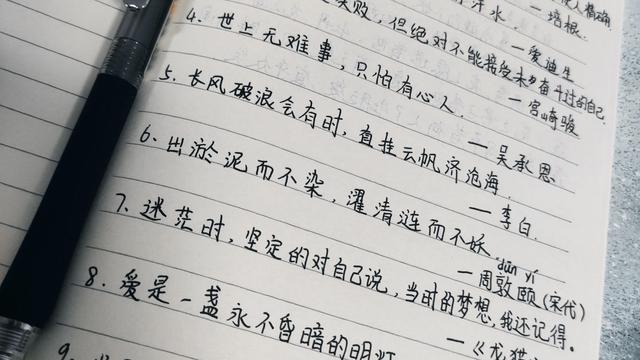 一培根.
失败,但绝对不能接受未奋斗过的自己.
一爱迪生
4. 世上无难事,只怕有心人.
一宫崎骏
5. 长风破浪会有时,直挂云帆济沧海.
一吴承恩
6. 出淤泥而不染,濯清涟而不妖.
一李白.
dūn yí
7. 迷茫时,坚定的对自己说,当时的梦想,我还记得.
一周敦颐(宋代)
8. 爱是一盏永不昏暗的明灯
一《龙猫
9.